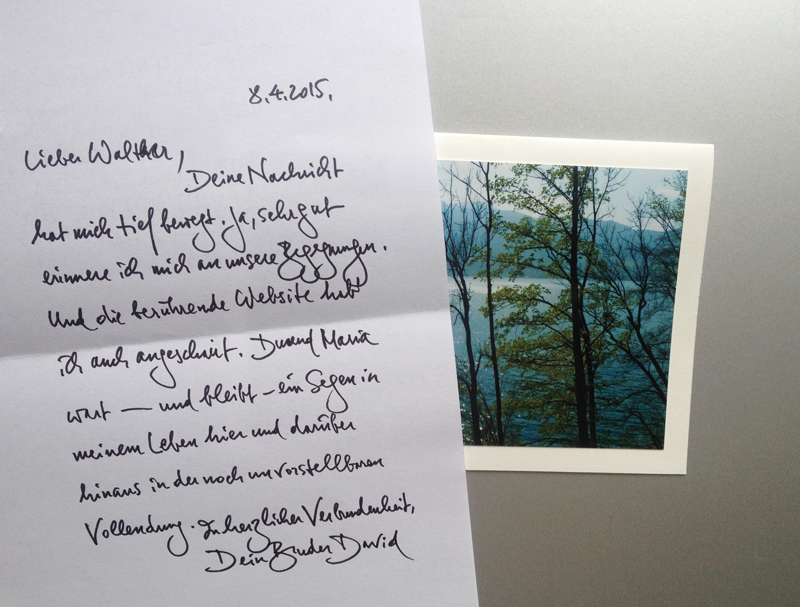 8.4.2015.
Lieber Walther,
Deine Nachricht
hat mich tief bewegt. Ja, sehr gut
erinnere ich mich an unsere Begegnungen.
Und die berührende Website hab
ich auch angeschaut. Du und Maria
wart — und bleibt – ein Segen in
meinem Leben hier und darüber
hinaus in der noch unvorstellbaren
Vollendung. In herzlicher Verbundenheit,
Dein Bruder David